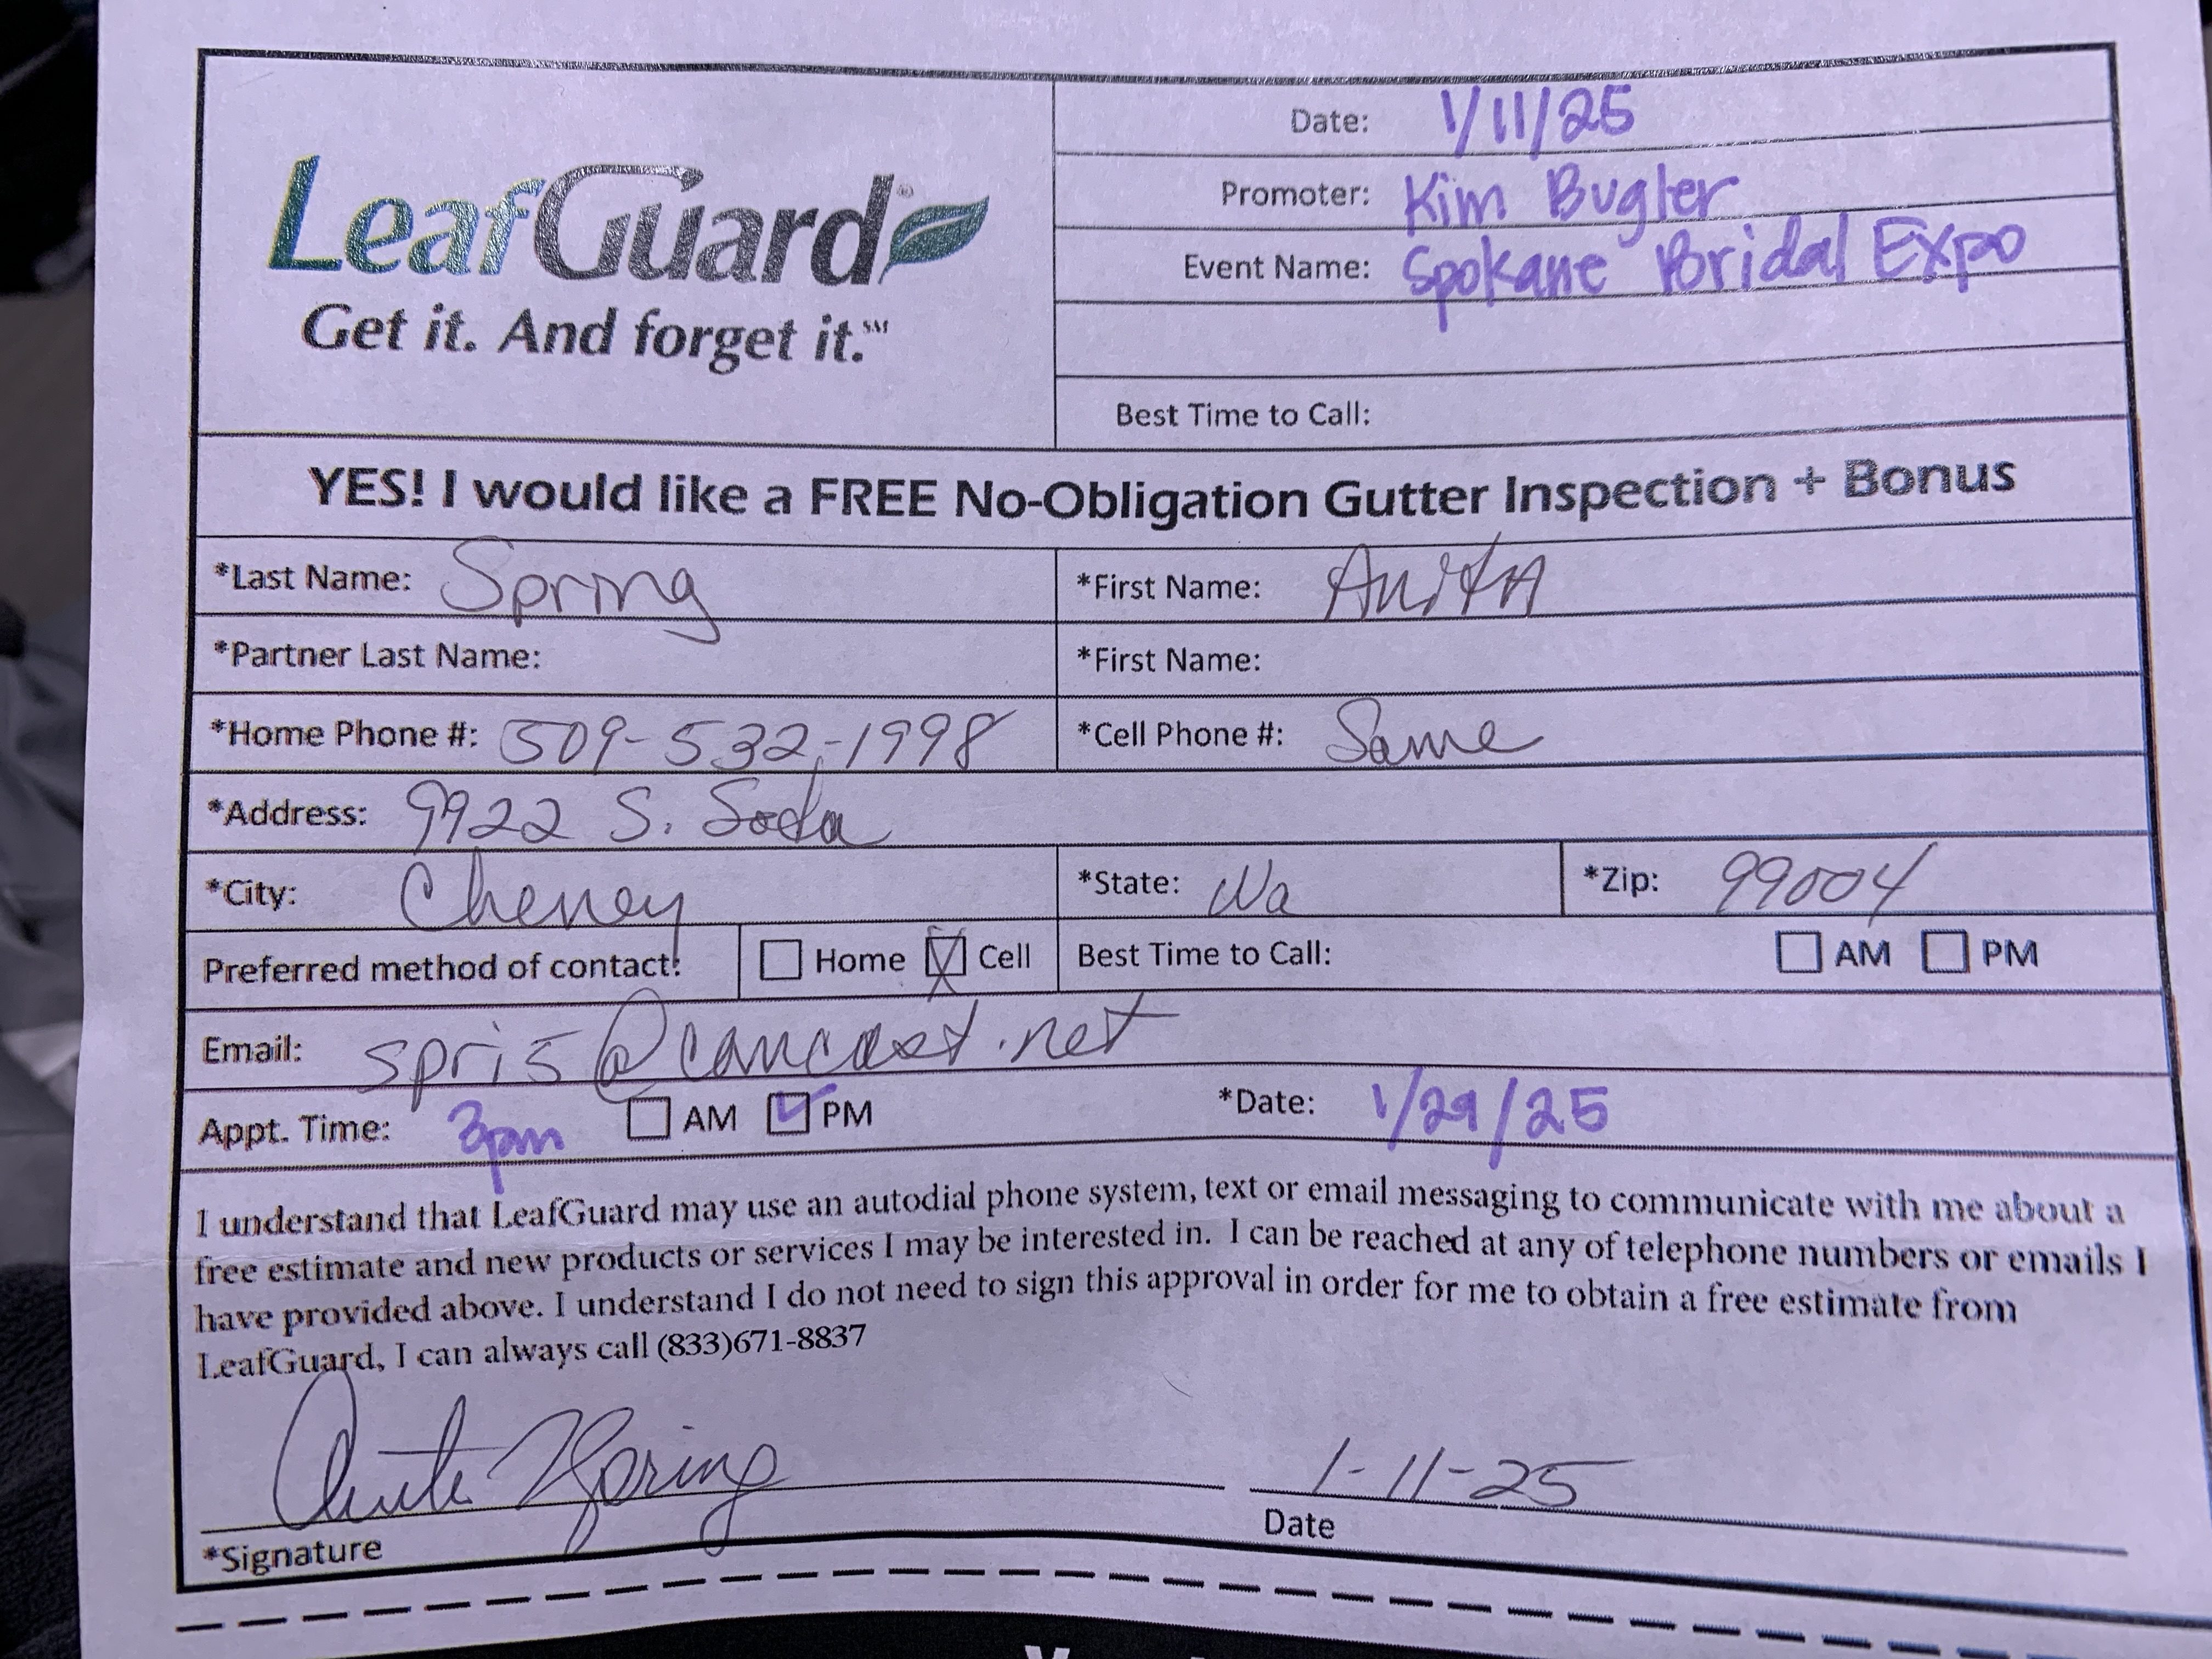 Date: 1/11/25
LeafGuard®
Get it. And forget it.℠
Promoter: Kim Bugler
Event Name: Spokane Bridal Expo
Best Time to Call:
YES! I would like a FREE No-Obligation Gutter Inspection + Bonus
*Last Name: Spring *First Name: Anita
*Partner Last Name: *First Name:
*Home Phone #: 509-532-1998 *Cell Phone #: Same
*Address: 9922 S. Soda
*City: Cheney *State: Wa *Zip: 99004
Preferred method of contact: Home Cell Best Time to Call: AM PM
Email: spris@comcast.net
Appt. Time: 3pm AM PM *Date: 1/29/25
I understand that LeafGuard may use an autodial phone system, text or email messaging to communicate with me about a
free estimate and new products or services I may be interested in. I can be reached at any of telephone numbers or emails I
have provided above. I understand I do not need to sign this approval in order for me to obtain a free estimate from
LeafGuard, I can always call (833)671-8837
Anita Spring 1-11-25
*Signature Date